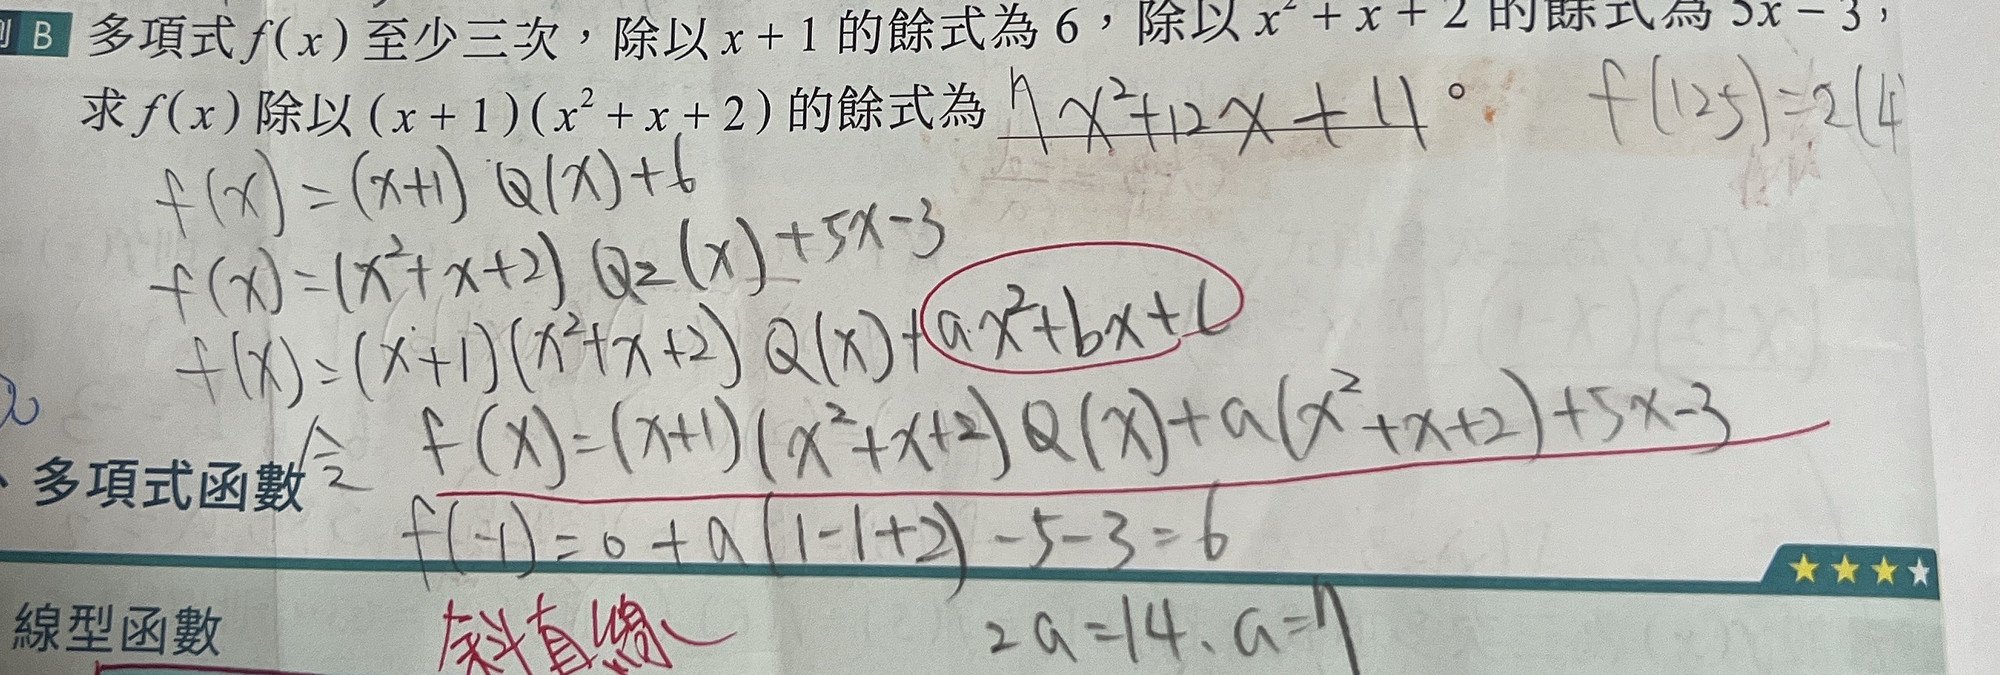 例 B 多項式 f(x) 至少三次，除以 x + 1 的餘式為 6，除以 x² + x + 2 的餘式為 5x − 3，
求 f(x) 除以 (x + 1)(x² + x + 2) 的餘式為 7x²+12x+11。
f(125)=2(4
f(x)=(x+1) Q(x)+6
f(x)=(x²+x+2) Q2(x)+5x-3
f(x)=(x+1)(x²+x+2) Q(x)+ax²+bx+c
f(x)=(x+1)(x²+x+2)Q(x)+a(x²+x+2)+5x-3
多項式函數
f(-1)=0+a(1-1+2)-5-3=6
線型函數
斜直線
2a=14、a=7